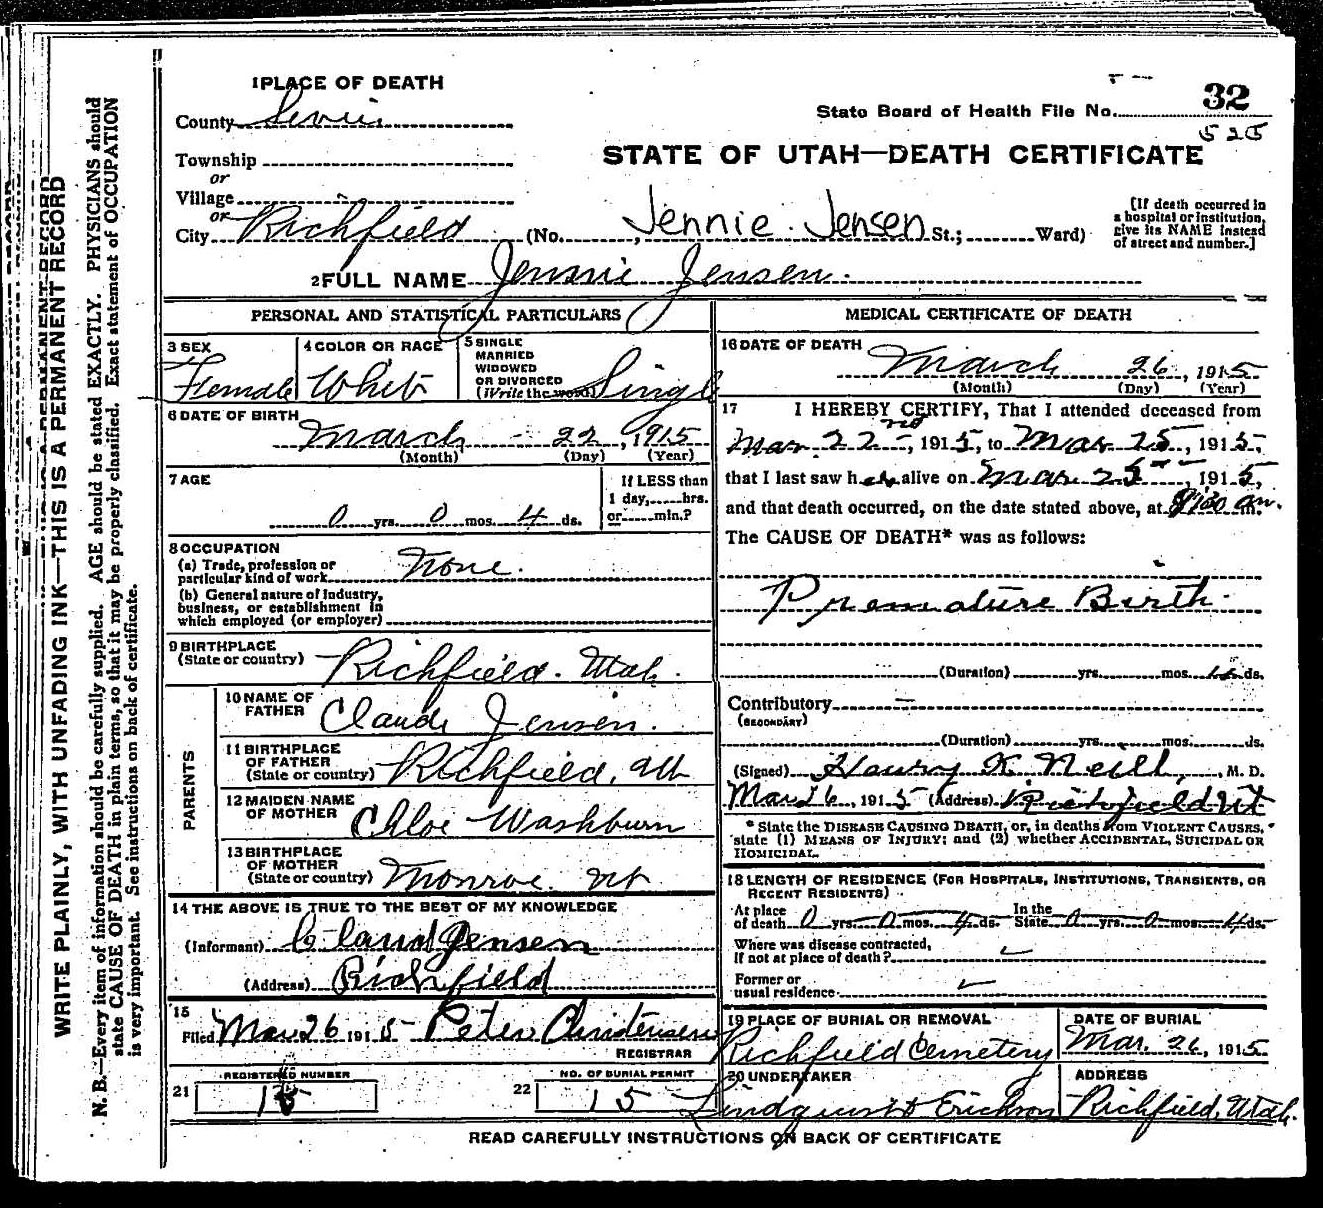 1 PLACE OF DEATH
County Sevier
Township
or
Village
or
City Richfield (No. Jennie Jensen St.; Ward)
32
State Board of Health File No.
525
STATE OF UTAH—DEATH CERTIFICATE
[If death occurred in
a hospital or institution,
give its NAME instead
of street and number.]
2 FULL NAME Jennie Jensen.
PERSONAL AND STATISTICAL PARTICULARS
3 SEX
Female
4 COLOR OR RACE
White
5 SINGLE
MARRIED
WIDOWED
OR DIVORCED
(Write the word) Single
6 DATE OF BIRTH
March 22, 1915
(Month) (Day) (Year)
7 AGE
0 yrs. 0 mos. 4 ds.
If LESS than
1 day, hrs.
or min.?
8 OCCUPATION
(a) Trade, profession or
particular kind of work None.
(b) General nature of Industry,
business, or establishment in
which employed (or employer)
9 BIRTHPLACE
(State or country) Richfield. Utah.
PARENTS
10 NAME OF
FATHER Claude Jensen.
11 BIRTHPLACE
OF FATHER
(State or country) Richfield, Ut
12 MAIDEN NAME
OF MOTHER Chloe Washburn
13 BIRTHPLACE
OF MOTHER
(State or country) Monroe. Ut
14 THE ABOVE IS TRUE TO THE BEST OF MY KNOWLEDGE
(Informant) Claud Jensen
(Address) Richfield
15
Filed Mar 26 1915 Peter Christensen
REGISTRAR
21 REGISTERED NUMBER
15
22 NO. OF BURIAL PERMIT
15
MEDICAL CERTIFICATE OF DEATH
16 DATE OF DEATH
March 26, 1915
(Month) (Day) (Year)
17 I HEREBY CERTIFY, That I attended deceased from
Mar. 22nd, 1915, to Mar 25, 1915,
that I last saw her alive on Mar 25, 1915,
and that death occurred, on the date stated above, at m.
The CAUSE OF DEATH* was as follows:
Premature Birth.
(Duration) yrs. mos. ds.
Contributory —
(SECONDARY)
(Duration) yrs. mos. ds.
(Signed) Henry K. Neill, M. D.
Mar 26, 1915 (Address) Richfield Ut
* State the DISEASE CAUSING DEATH, or, in deaths from VIOLENT CAUSES,
state (1) MEANS OF INJURY; and (2) whether ACCIDENTAL, SUICIDAL OR
HOMICIDAL.
18 LENGTH OF RESIDENCE (FOR HOSPITALS, INSTITUTIONS, TRANSIENTS, OR
RECENT RESIDENTS)
At place
of death 0 yrs. 0 mos. 4 ds. In the
State 0 yrs. 0 mos. 4 ds.
Where was disease contracted,
If not at place of death?
Former or
usual residence
19 PLACE OF BURIAL OR REMOVAL
Richfield Cemetery
DATE OF BURIAL
Mar. 26, 1915
20 UNDERTAKER
Lindquist & Erickson
ADDRESS
Richfield, Utah.
READ CAREFULLY INSTRUCTIONS ON BACK OF CERTIFICATE
WRITE PLAINLY, WITH UNFADING INK—THIS IS A PERMANENT RECORD
N. B.—Every item of information should be carefully supplied. AGE should be stated EXACTLY. PHYSICIANS should
state CAUSE OF DEATH in plain terms, so that it may be properly classified. Exact statement of OCCUPATION
is very important. See instructions on back of certificate.